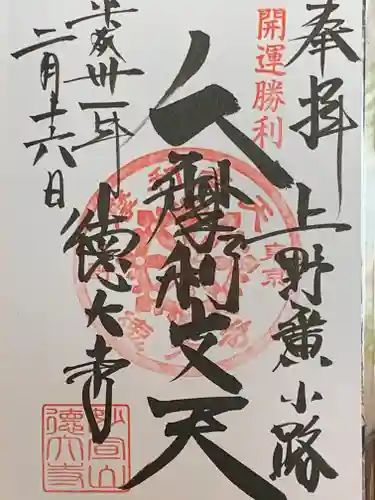 奉拝
上野廣小路
開運勝利
摩利支天
平成卅一年
二月十六日
德大寺
妙宣山
德大寺